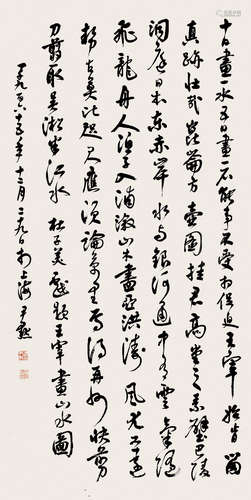 十日畫一水五日畫一石能事不受相促迫王宰始肯留
真跡壯哉崑崙方壺圖挂君高堂之素壁巴陵
洞庭日本東赤岸水與銀河通中有雲氣隨
飛龍舟人漁子入浦漵山木盡亞洪濤風尤工遠
勢古莫比咫尺應須論萬里焉得并州快剪
刀剪取吳淞半江水 杜子美戲題王宰畫山水圖
一九六五年十二月 九日於上海 尹默